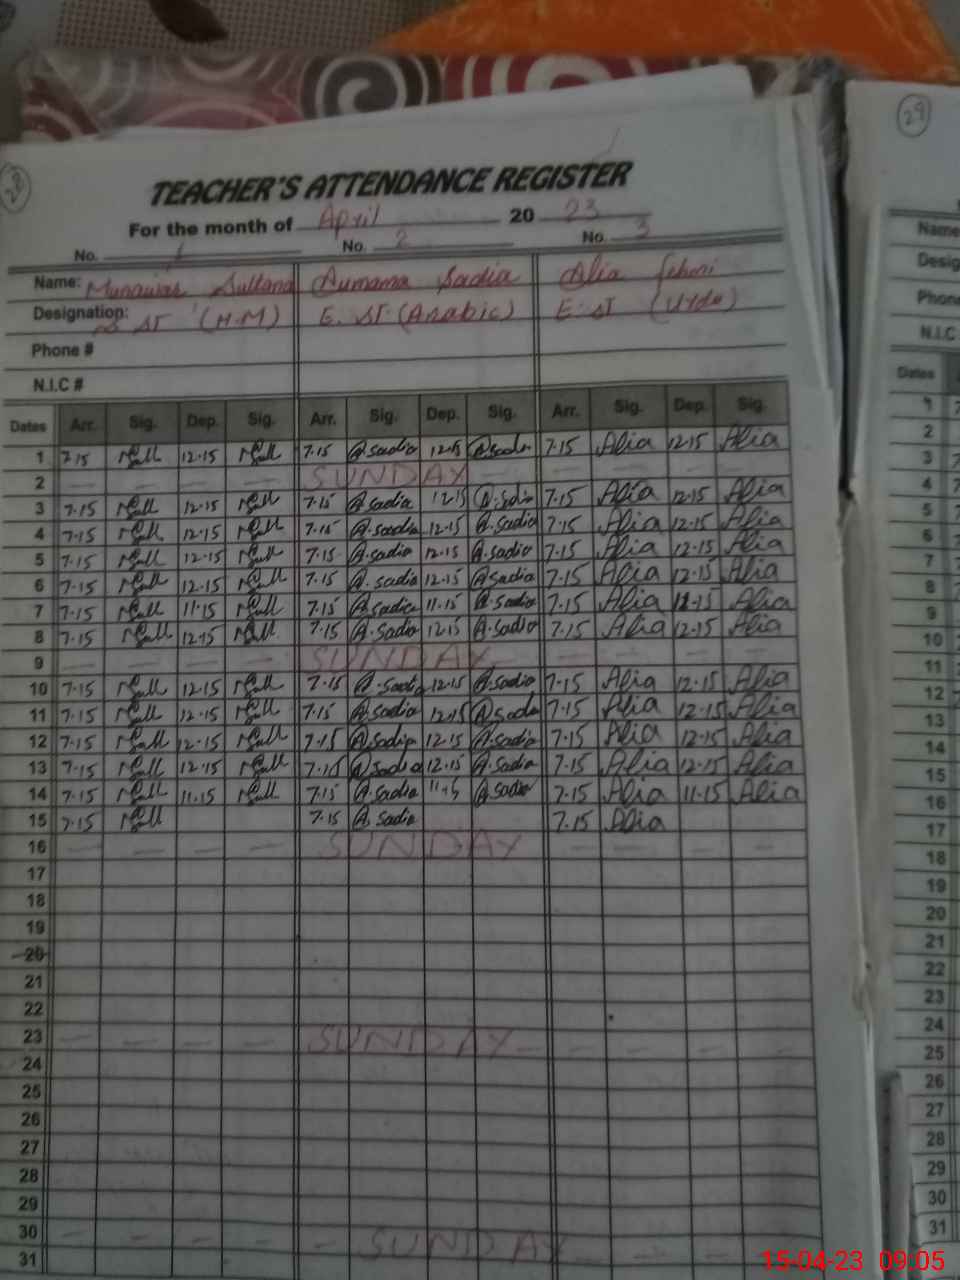 28
29
TEACHER'S ATTENDANCE REGISTER
For the month of April 20 23
No. 1 No. 2 No. 3
Name: Munawar Sultana Aumama Sadia Alia
Designation: ST (H.M) E. ST (Arabic) E. ST (Urdu)
Phone #
N.I.C #
Dates Arr. Sig. Dep. Sig. Arr. Sig. Dep. Sig. Arr. Sig. Dep. Sig.
1 7.15 12.15 7.15 A.sadia 12.15 A.sadia 7.15 Alia 12.15 Alia
2 SUNDAY
3 7.15 12.15 7.15 A.sadia 12.15 A.sadia 7.15 Alia 12.15 Alia
4 7.15 12.15 7.15 A.sadia 12.15 A.sadia 7.15 Alia 12.15 Alia
5 7.15 12.15 7.15 A.sadia 12.15 A.sadia 7.15 Alia 12.15 Alia
6 7.15 12.15 7.15 A.sadia 12.15 A.sadia 7.15 Alia 12.15 Alia
7 7.15 11.15 7.15 A.sadia 11.15 A.sadia 7.15 Alia 11.15 Alia
8 7.15 12.15 7.15 A.sadia 12.15 A.sadia 7.15 Alia 12.15 Alia
9 SUNDAY
10 7.15 12.15 7.15 A.sadia 12.15 A.sadia 7.15 Alia 12.15 Alia
11 7.15 12.15 7.15 A.sadia 12.15 A.sadia 7.15 Alia 12.15 Alia
12 7.15 12.15 7.15 A.sadia 12.15 A.sadia 7.15 Alia 12.15 Alia
13 7.15 12.15 7.15 A.sadia 12.15 A.sadia 7.15 Alia 12.15 Alia
14 7.15 11.15 7.15 A.sadia 11.15 A.sadia 7.15 Alia 11.15 Alia
15 7.15 7.15 A.sadia 7.15 Alia
16 SUNDAY
17
18
19
20
21
22
23 SUNDAY
24
25
26
27
28
29
30 SUNDAY
31
Name
Desig
Phone
N.I.C
Dates
1
2
3
4
5
6
7
8
9
10
11
12
13
14
15
16
17
18
19
20
21
22
23
24
25
26
27
28
29
30
31
15-04-23 09:05